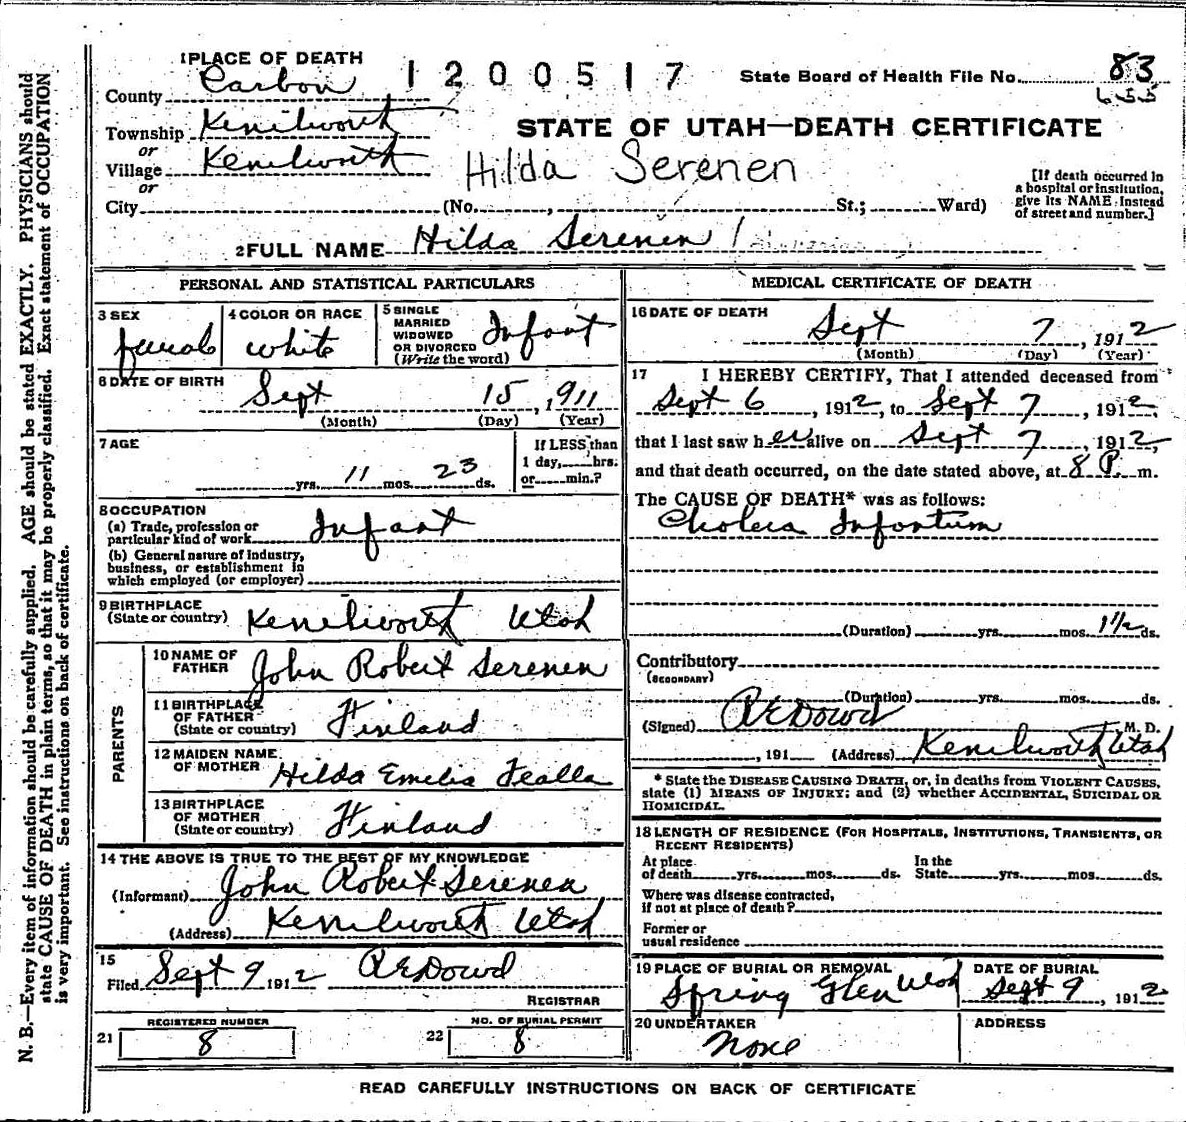 1 PLACE OF DEATH
1200517
State Board of Health File No. 83
655
County Carbon
Township Kenilworth
or
Village Kenilworth
or
STATE OF UTAH—DEATH CERTIFICATE
Hilda Serenen
[If death occurred in a hospital or institution, give its NAME instead of street and number.]
City (No. , St.; Ward)
2 FULL NAME Hilda Serenen
PERSONAL AND STATISTICAL PARTICULARS
3 SEX female
4 COLOR OR RACE white
5 SINGLE MARRIED WIDOWED OR DIVORCED (Write the word) Infant
6 DATE OF BIRTH Sept 15, 1911
(Month) (Day) (Year)
7 AGE
yrs. 11 mos. 23 ds.
If LESS than 1 day, hrs. or min.?
8 OCCUPATION
(a) Trade, profession or particular kind of work Infant
(b) General nature of industry, business, or establishment in which employed (or employer)
9 BIRTHPLACE (State or country) Kenilworth Utah
PARENTS
10 NAME OF FATHER John Robert Serenen
11 BIRTHPLACE OF FATHER (State or country) Finland
12 MAIDEN NAME OF MOTHER Hilda Emelia Fealla
13 BIRTHPLACE OF MOTHER (State or country) Finland
14 THE ABOVE IS TRUE TO THE BEST OF MY KNOWLEDGE
(Informant) John Robert Serenen
(Address) Kenilworth Utah
15
Filed Sept 9 1912 R E Dowd
REGISTRAR
21 REGISTERED NUMBER 8
22 NO. OF BURIAL PERMIT 8
MEDICAL CERTIFICATE OF DEATH
16 DATE OF DEATH
Sept 7, 1912
(Month) (Day) (Year)
17 I HEREBY CERTIFY, That I attended deceased from
Sept 6, 1912, to Sept 7, 1912,
that I last saw her alive on Sept 7, 1912,
and that death occurred, on the date stated above, at 8 P. m.
The CAUSE OF DEATH* was as follows:
Cholera Infantum
(Duration) yrs. mos. 1½ ds.
Contributory
(SECONDARY)
(Duration) yrs. mos. ds.
(Signed) R E Dowd M. D.
, 191 (Address) Kenilworth Utah
* State the DISEASE CAUSING DEATH, or, in deaths from VIOLENT CAUSES, state (1) MEANS OF INJURY; and (2) whether ACCIDENTAL, SUICIDAL OR HOMICIDAL.
18 LENGTH OF RESIDENCE (FOR HOSPITALS, INSTITUTIONS, TRANSIENTS, OR RECENT RESIDENTS)
At place of death yrs. mos. ds. In the State yrs. mos. ds.
Where was disease contracted, if not at place of death?
Former or usual residence
19 PLACE OF BURIAL OR REMOVAL Spring Glen Utah
DATE OF BURIAL Sept 9, 1912
20 UNDERTAKER none
ADDRESS
READ CAREFULLY INSTRUCTIONS ON BACK OF CERTIFICATE
N. B.—Every item of information should be carefully supplied. AGE should be stated EXACTLY. PHYSICIANS should
state CAUSE OF DEATH in plain terms, so that it may be properly classified. Exact statement of OCCUPATION
is very important. See instructions on back of certificate.